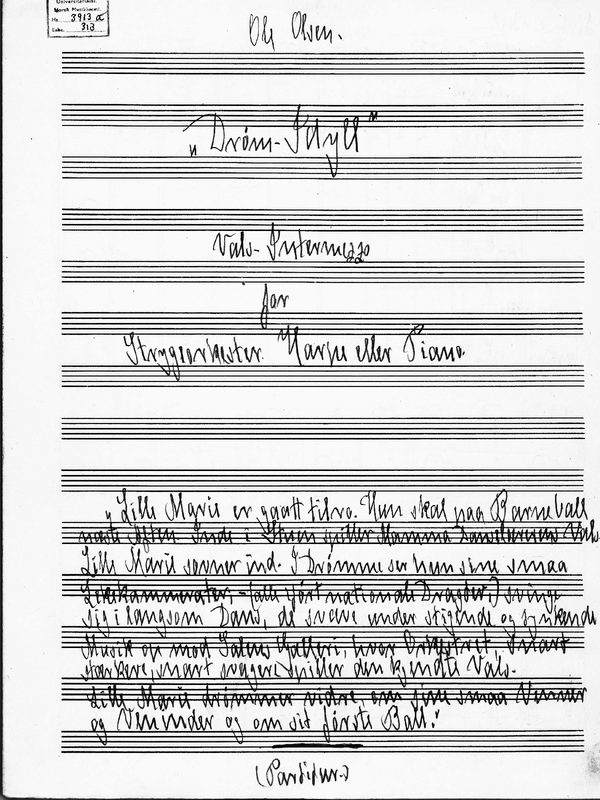 Universitetsbibl.
Norsk Musikksaml.
No. 3913 a
Labs. 313
Ole Olsen.
„Dröm-Idyll"
Vals-Intermezzo
for
Strygeorkester Harpe eller Piano.
„Lille Marie er gaatt tilro. Hun skal paa Barneball
næste Aften. Inde i Stuen spiller Mamma Vals.
Lille Marie sovner ind. I Drömme ser hun sine smaa
Lekekammerater, - (alle fört nationale Dragter.) svinge
sig i langsom Dans, de sveve under stigende og synkende
Musik op mod Salens Galleri, hvor Orkestret snart
stærkere, snart svagere spiller den kjendte Vals.
Lille Marie drömmer vidre om sine smaa Venner
og Veninder og om sit förste Ball."
(Partitur.)